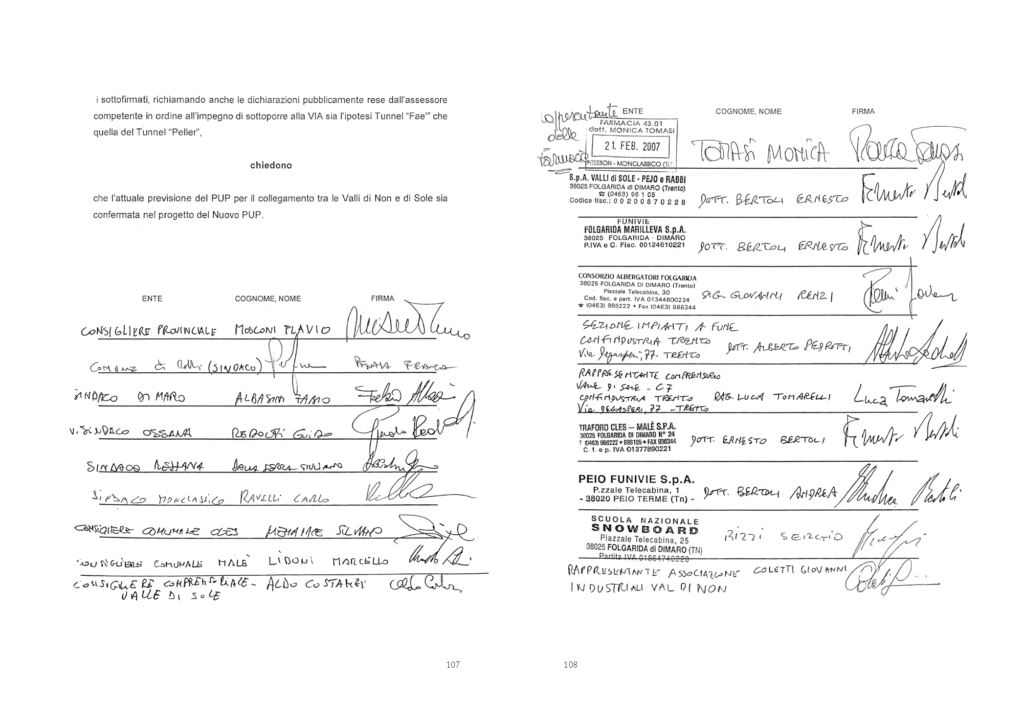 i sottofirmati, richiamando anche le dichiarazioni pubblicamente rese dall'assessore
competente in ordine all'impegno di sottoporre alla VIA sia l'ipotesi Tunnel "Fae'" che
quella del Tunnel "Peller",
chiedono
che l'attuale previsione del PUP per il collegamento tra le Valli di Non e di Sole sia
confermata nel progetto del Nuovo PUP.
ENTE COGNOME, NOME FIRMA
CONSIGLIERE PROVINCIALE MOSCONI FLAVIO
Comune di (SINDACO) PENASA FRANCA
SINDACO DIMARO ALBASINI FABIO
V. SINDACO OSSANA REDOLFI GUIDO
SINDACO DALLA SERRA GIULIANO
SINDACO MONCLASSICO RAVELLI CARLO
CONSIGLIERE COMUNALE CLES SILVANO
CONSIGLIERE COMUNALE MALÈ LIBONI MARCELLO
CONSIGLIERE COMPRENSORIALE - ALDO COSTANZI
VALLE DI SOLE
107
ENTE COGNOME, NOME FIRMA
delle
FARMACIA 43.01
dott. MONICA TOMASI
21 FEB. 2007
MONCLASSICO
TOMASI MONICA
S.p.A. VALLI di SOLE - PEJO e RABBI
38025 FOLGARIDA DI DIMARO (Trento)
☎ (0463) 98 1 05
Codice fisc.: 0 0 2 0 0 8 7 0 2 2 8
DOTT. BERTOLI ERNESTO Ernesto Bertoli
FUNIVIE
FOLGARIDA MARILLEVA S.p.A.
38025 FOLGARIDA - DIMARO
P.IVA e C. Fisc. 00124610221
DOTT. BERTOLI ERNESTO Ernesto Bertoli
CONSORZIO ALBERGATORI FOLGARIDA
38025 FOLGARIDA DI DIMARO (Trento)
Piazzale Telecabina, 30
Cod. fisc. e part. IVA 01344600224
☎ (0463) 986222 • Fax (0463) 986344
SIG. GIOVANNI RENZI
SEZIONE IMPIANTI A FUNE
CONFINDUSTRIA TRENTO
Via Degasperi, 77 - TRENTO
DOTT. ALBERTO PEDROTTI
RAPPRESENTANTE COMPRENSORIO
VALLE DI SOLE - C7
CONFINDUSTRIA TRENTO
Via DEGASPERI, 77 - TRENTO
RAG. LUCA TOMARELLI Luca Tomarelli
TRAFORO CLES - MALÈ S.P.A.
38025 FOLGARIDA DI DIMARO N° 24
T (0463) 986222 • 986105 • FAX 986344
C. f. e p. IVA 01377890221
DOTT. ERNESTO BERTOLI Ernesto Bertoli
PEIO FUNIVIE S.p.A.
P.zzale Telecabina, 1
- 38020 PEIO TERME (Tn) -
DOTT. BERTOLI ANDREA Andrea Bertoli
SCUOLA NAZIONALE
SNOWBOARD
Piazzale Telecabina, 25
38025 FOLGARIDA di DIMARO (TN)
Partita IVA 01664740228
RIZZI SERGIO
RAPPRESENTANTE ASSOCIAZIONE COLETTI GIOVANNI
INDUSTRIALI VAL DI NON
108